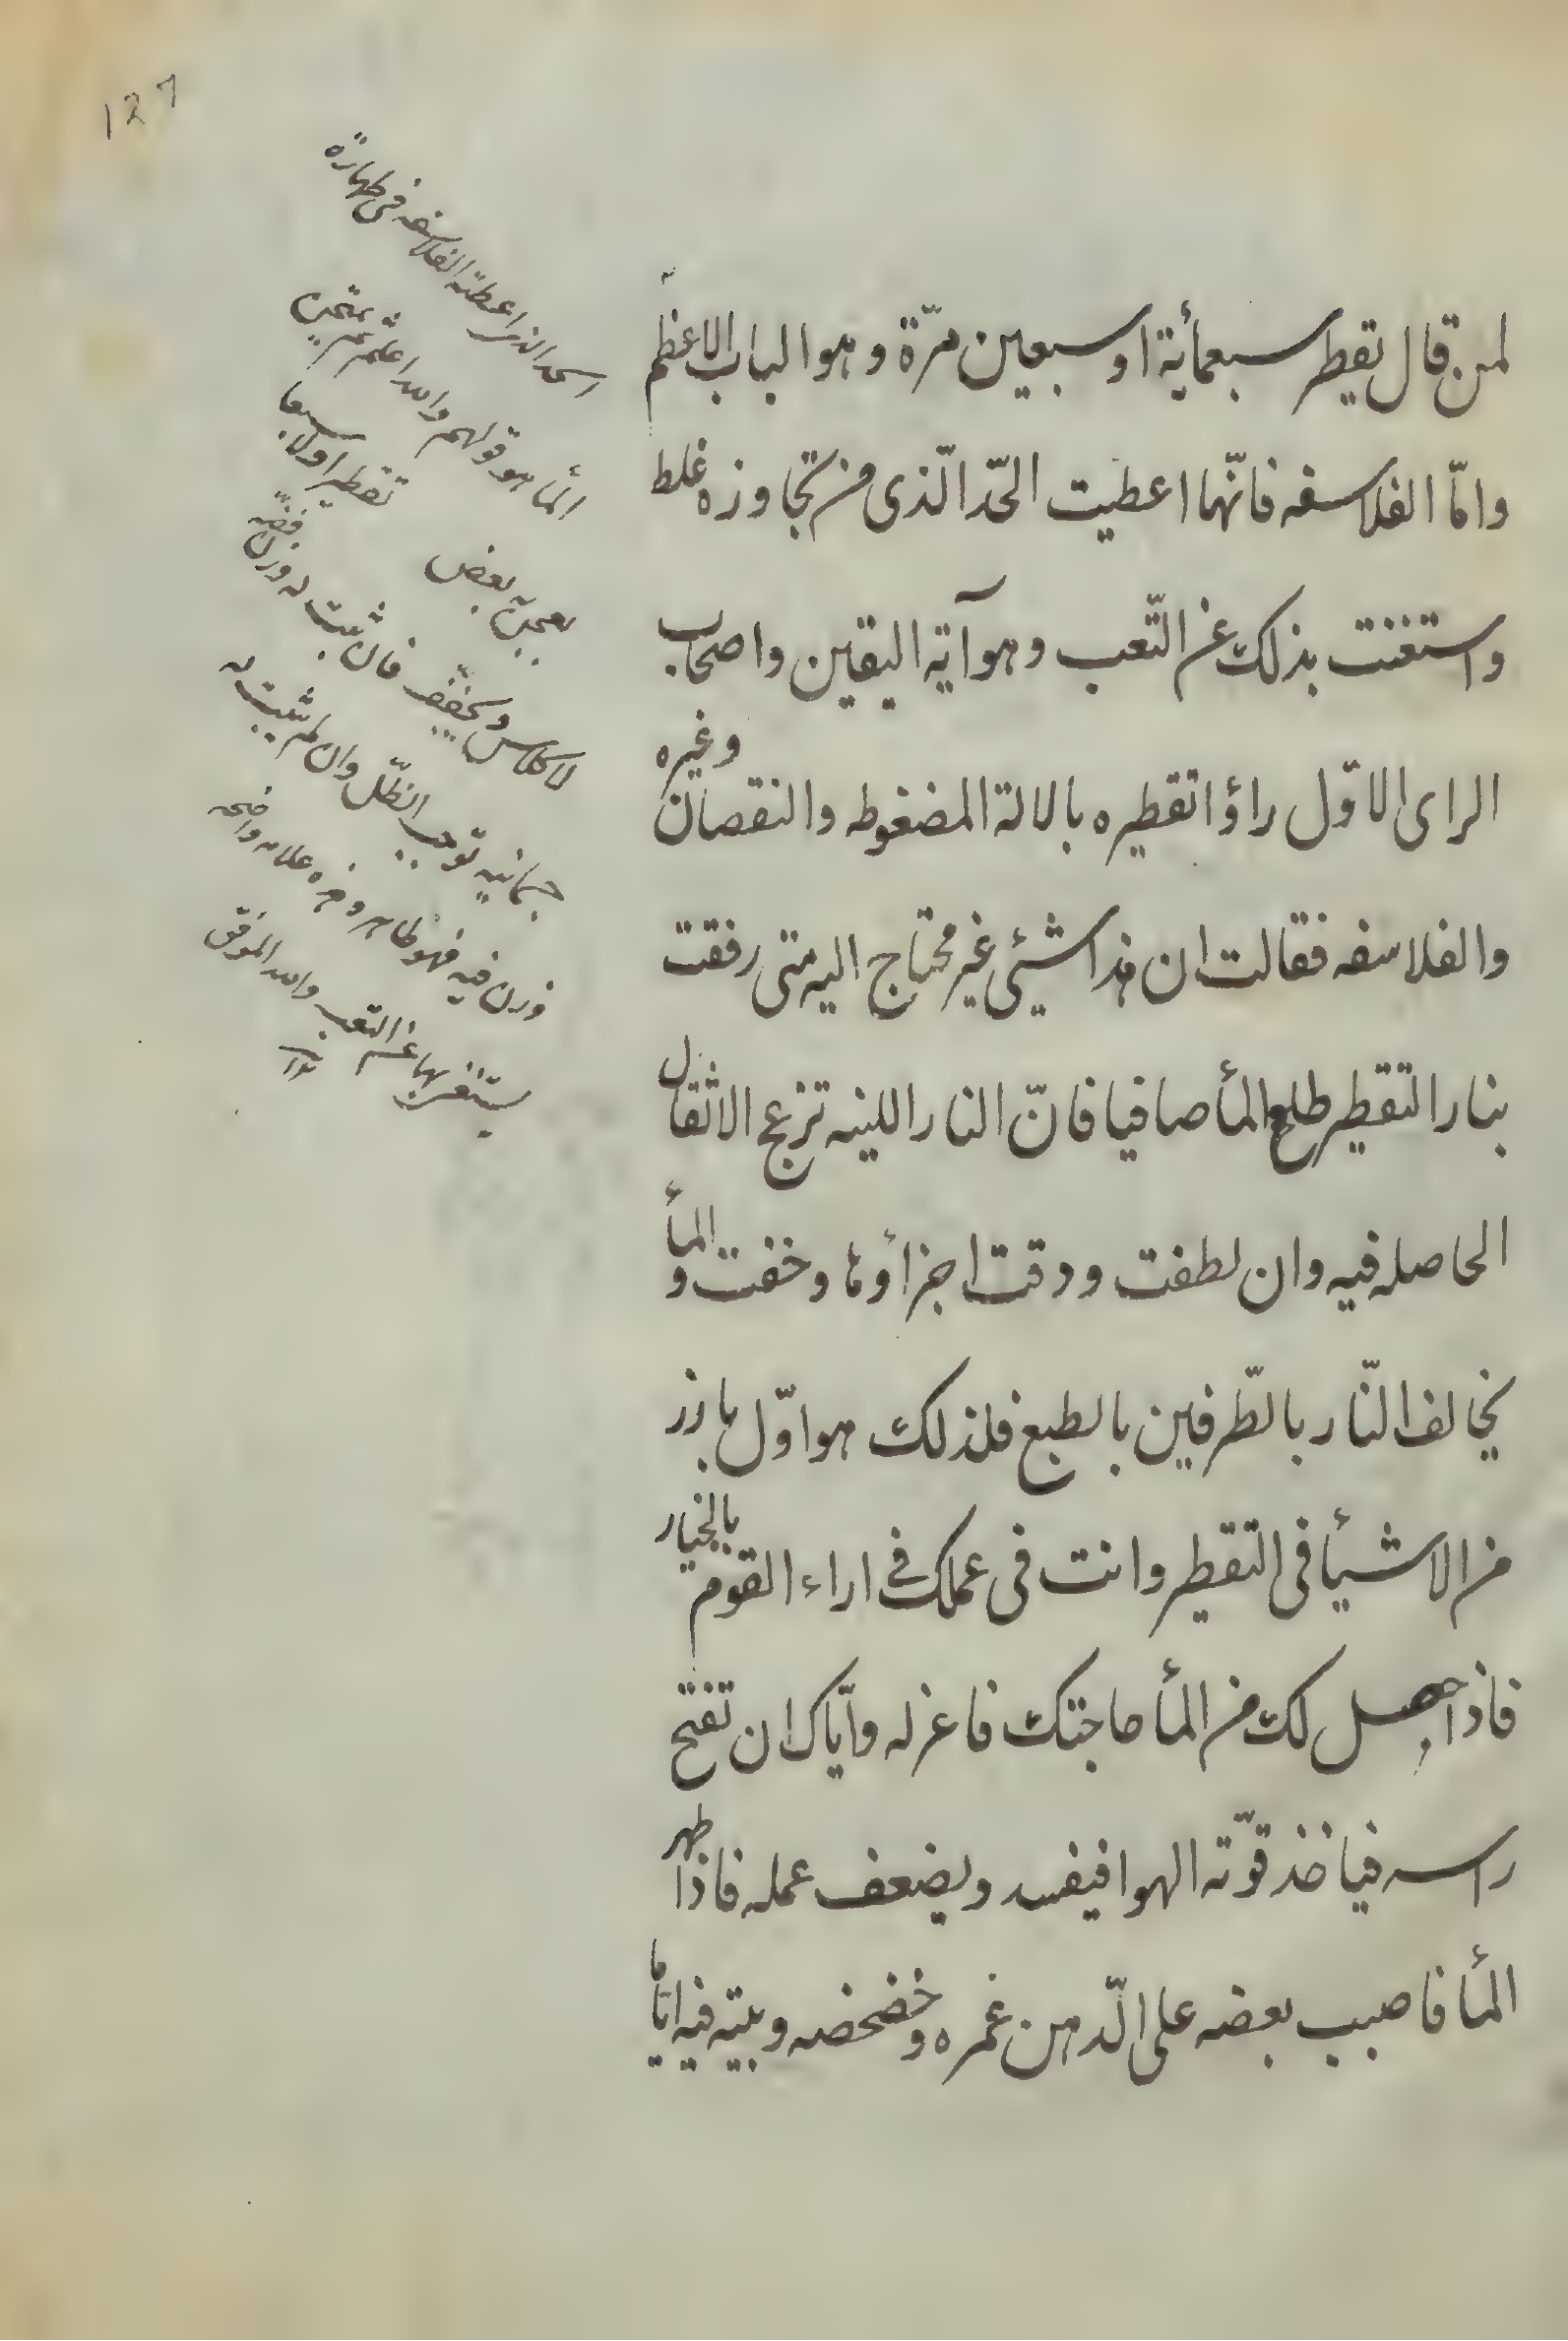 127
لمن قال تقطر سبعمأية او سبعين مرّة وهو الباب الاعظم
وامّا الفلاسفه فانّها اعطيت الحّد الّذى من تجاوزه غلط
واستغنت بذلك عن التّعب وهو آية اليقين واصحاب
الراى الاوّل راؤا تقطيره بالالة المضغوطه والنقصان وغيره
والفلاسفه فقالت ان هذا شيئ غير محتاج اليه متى رفقت
بنار التقطير طلع المأ صافيا فانّ النار اللينه تزعج الاثقال
الحاصله فيه وان لطفت ودقت اجزأوها وخفت والمأ
يخالف النّار بالطّرفين بالطبع فلذلك هو اوّل بارز
من الاشيأ فى التقطير وانت فى عملك فى اراء القوم بالخيار
فاذا حصل لك من المأ حاجتك فاعزله وايّاك ان تفتح
راسه فياخذ قوّته الهوا فيفسد ويضعف عمله فاذا طهر
المأ فاصبب بعضه على الّدهن غمره وخضخضه وبيته فيه ايّاما
الحد الذى اعطته الفلاسفه فى طهارة
المأ هو قولهم والله اعلم ثم يمتحن
تقطير اولا سبعا
بعجن بعض
لاكلاس ويجفّف فان ثبت له وزن ففيه
جسمانيه توجب النظّل وان لم يثبت له
وزن فيه فهو طاهر وهذه علامه واضحه
يستغنى بها عن التعب والله الموفق